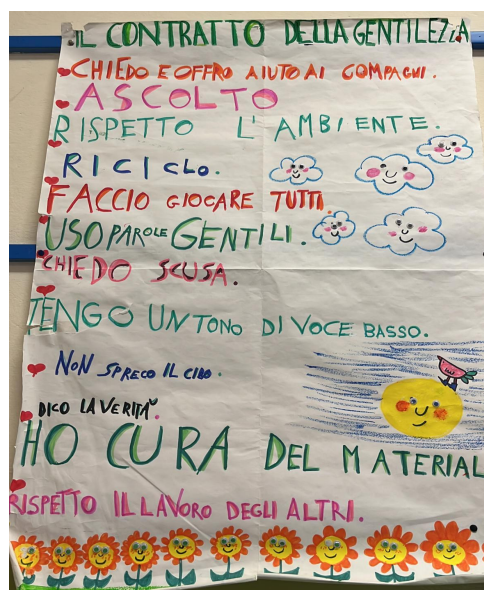 IL CONTRATTO DELLA GENTILEZZA
CHIEDO E OFFRO AIUTO AI COMPAGNI.
ASCOLTO
RISPETTO L'AMBIENTE.
RICICLO.
FACCIO GIOCARE TUTTI.
USO PAROLE GENTILI.
CHIEDO SCUSA.
TENGO UN TONO DI VOCE BASSO.
NON SPRECO IL CIBO.
DICO LA VERITÀ.
HO CURA DEL MATERIAL
RISPETTO IL LAVORO DEGLI ALTRI.